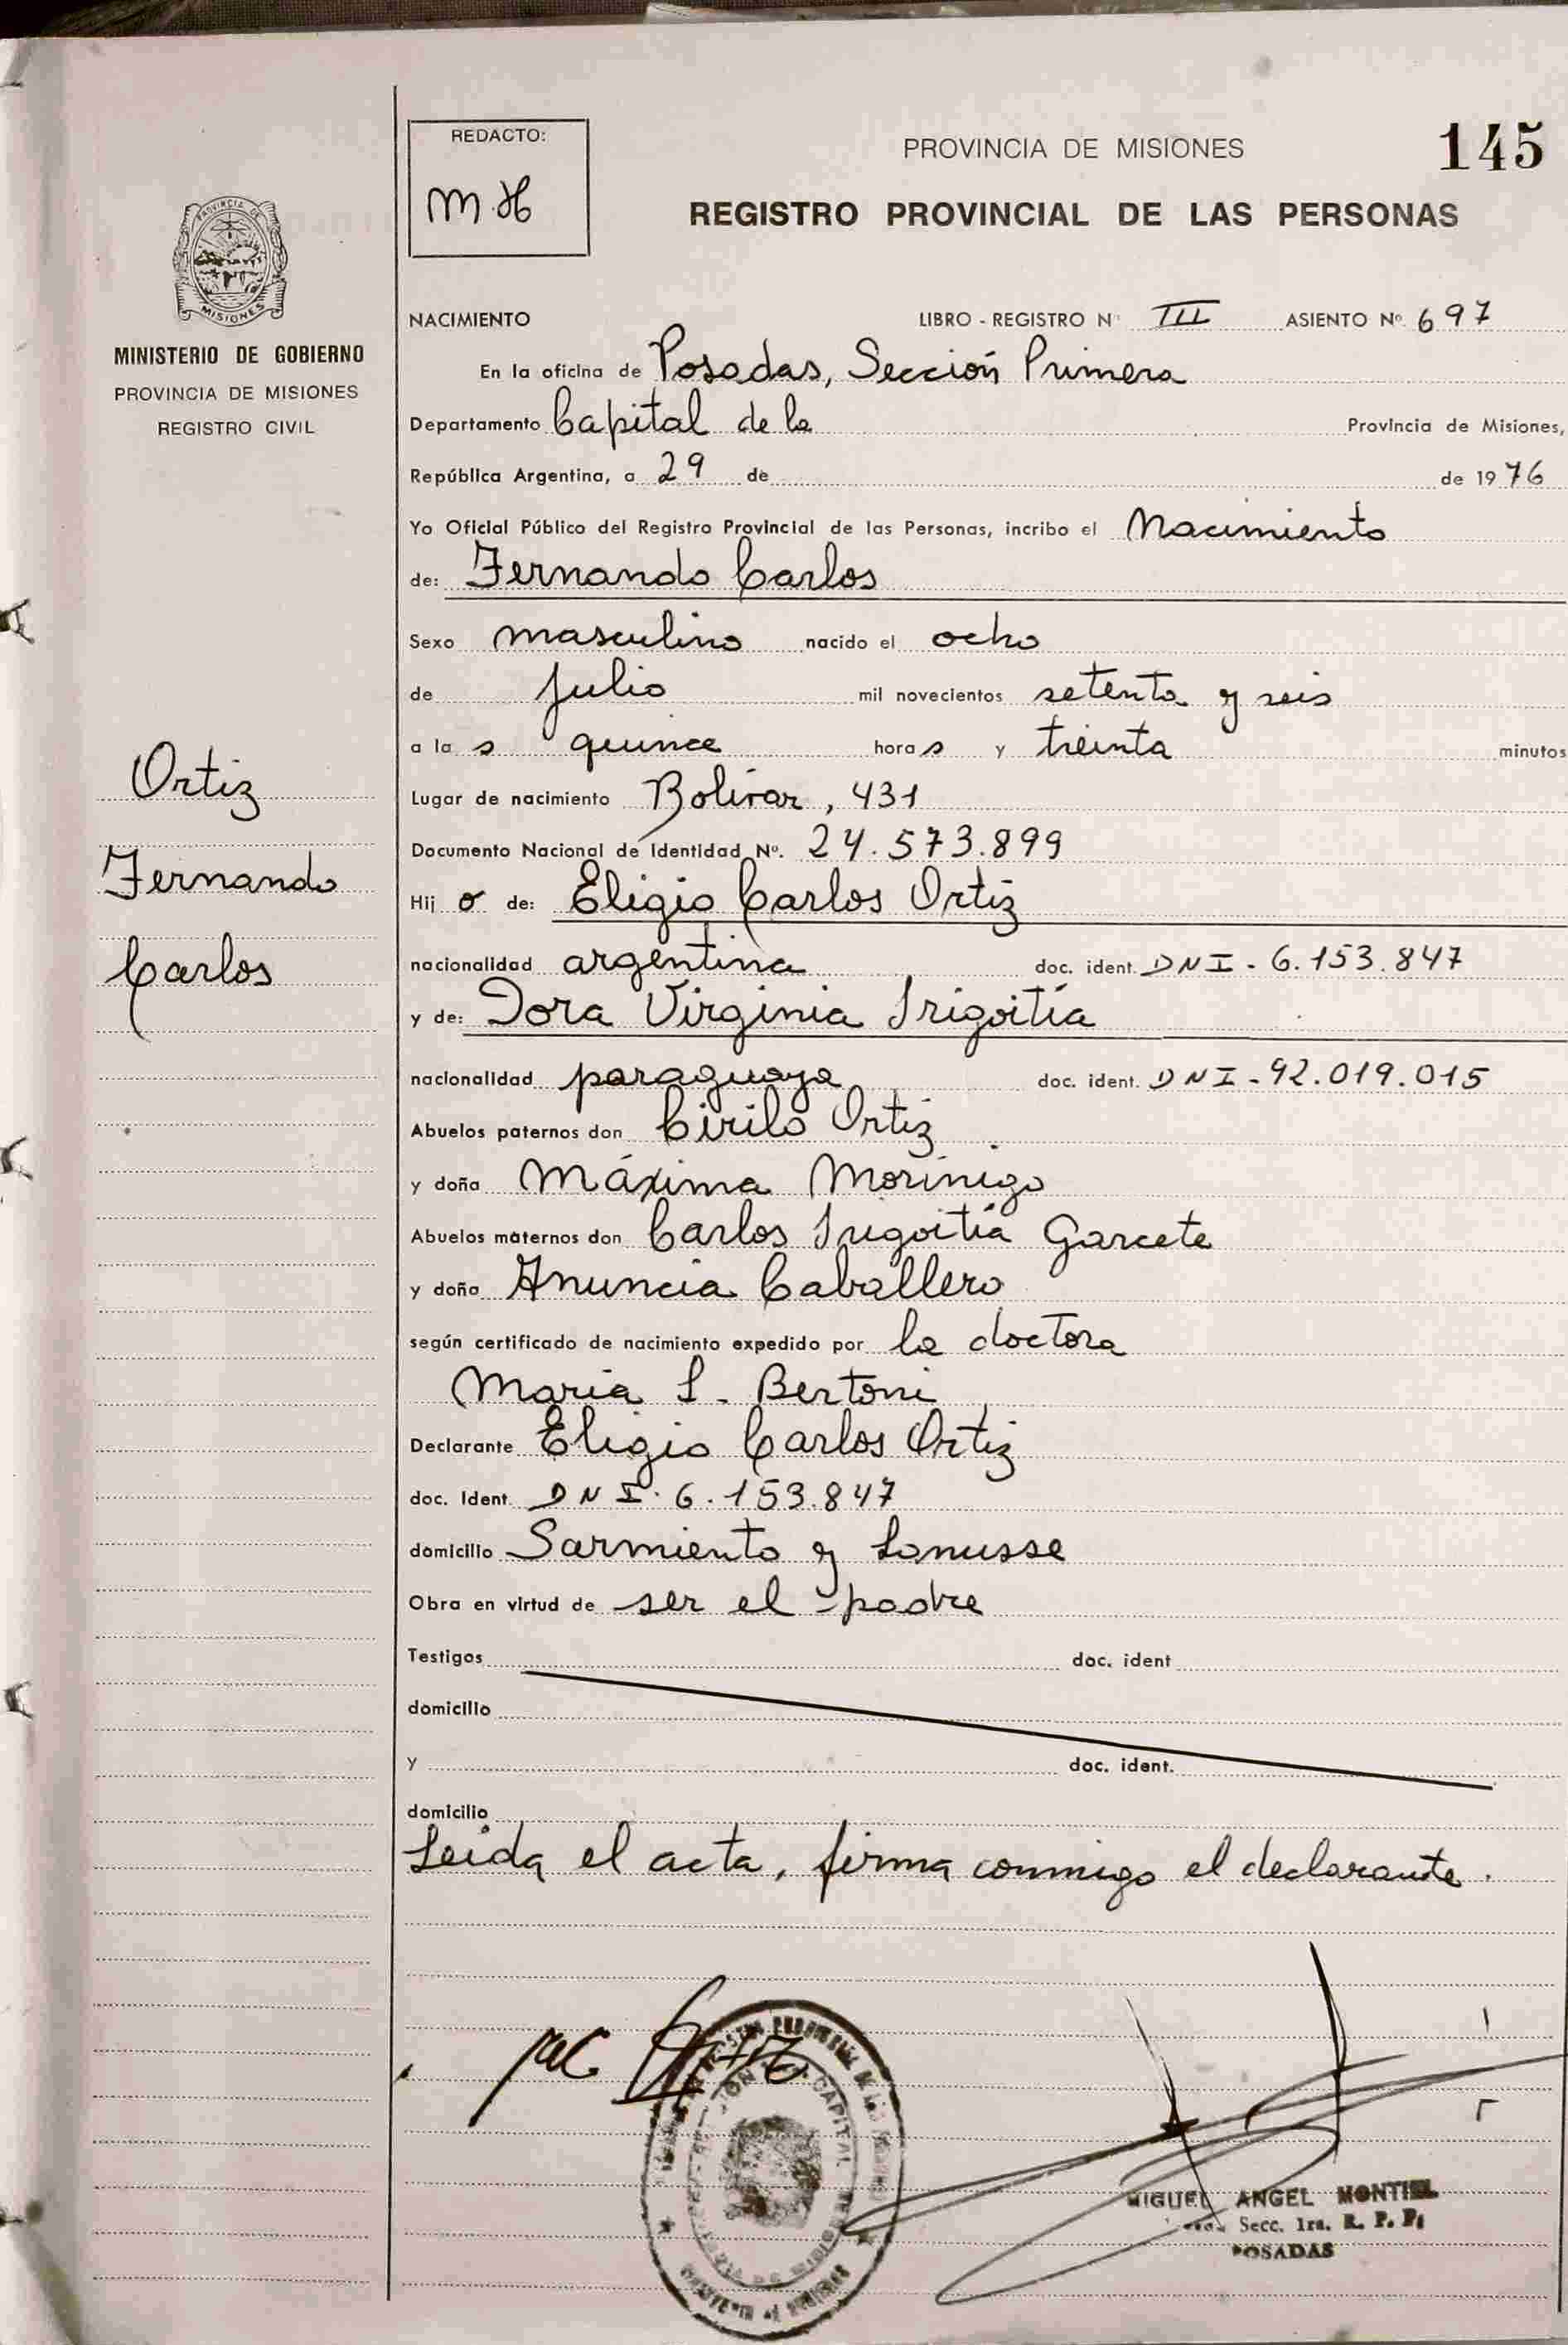 REDACTO:
M.H
PROVINCIA DE MISIONES
145
REGISTRO PROVINCIAL DE LAS PERSONAS
PROVINCIA DE
MISIONES
MINISTERIO DE GOBIERNO
PROVINCIA DE MISIONES
REGISTRO CIVIL
Ortiz
Fernando
Carlos
NACIMIENTO LIBRO - REGISTRO Nº III ASIENTO Nº 697
En la oficina de Posadas, Sección Primera
Departamento Capital de la Provincia de Misiones,
República Argentina, a 29 de de 1976
Yo Oficial Público del Registro Provincial de las Personas, incribo el Nacimiento
de: Fernando Carlos
Sexo masculino nacido el ocho
de julio mil novecientos setenta y seis
a la s quince hora s y treinta minutos
Lugar de nacimiento Bolívar, 431
Documento Nacional de Identidad Nº. 24.573.899
Hij o de: Eligio Carlos Ortiz
nacionalidad argentina doc. ident. DNI - 6.153.847
y de: Dora Virginia Irigoitía
nacionalidad paraguaya doc. ident. DNI - 92.019.015
Abuelos paternos don Cirilo Ortiz
y doña Máxima Morínigo
Abuelos maternos don Carlos Irigoitía Garcete
y doña Anuncia Caballero
según certificado de nacimiento expedido por la doctora
María L. Bertoni
Declarante Eligio Carlos Ortiz
doc. Ident. DNI. 6.153.847
domicilio Sarmiento y Lanusse
Obra en virtud de ser el padre
Testigos doc. ident
domicilio
y doc. ident.
domicilio
Leída el acta, firma conmigo el declarante.
Ortiz
CAPITAL
MIGUEL ANGEL MONTIEL
Secc. 1ra. R. P. P.
POSADAS